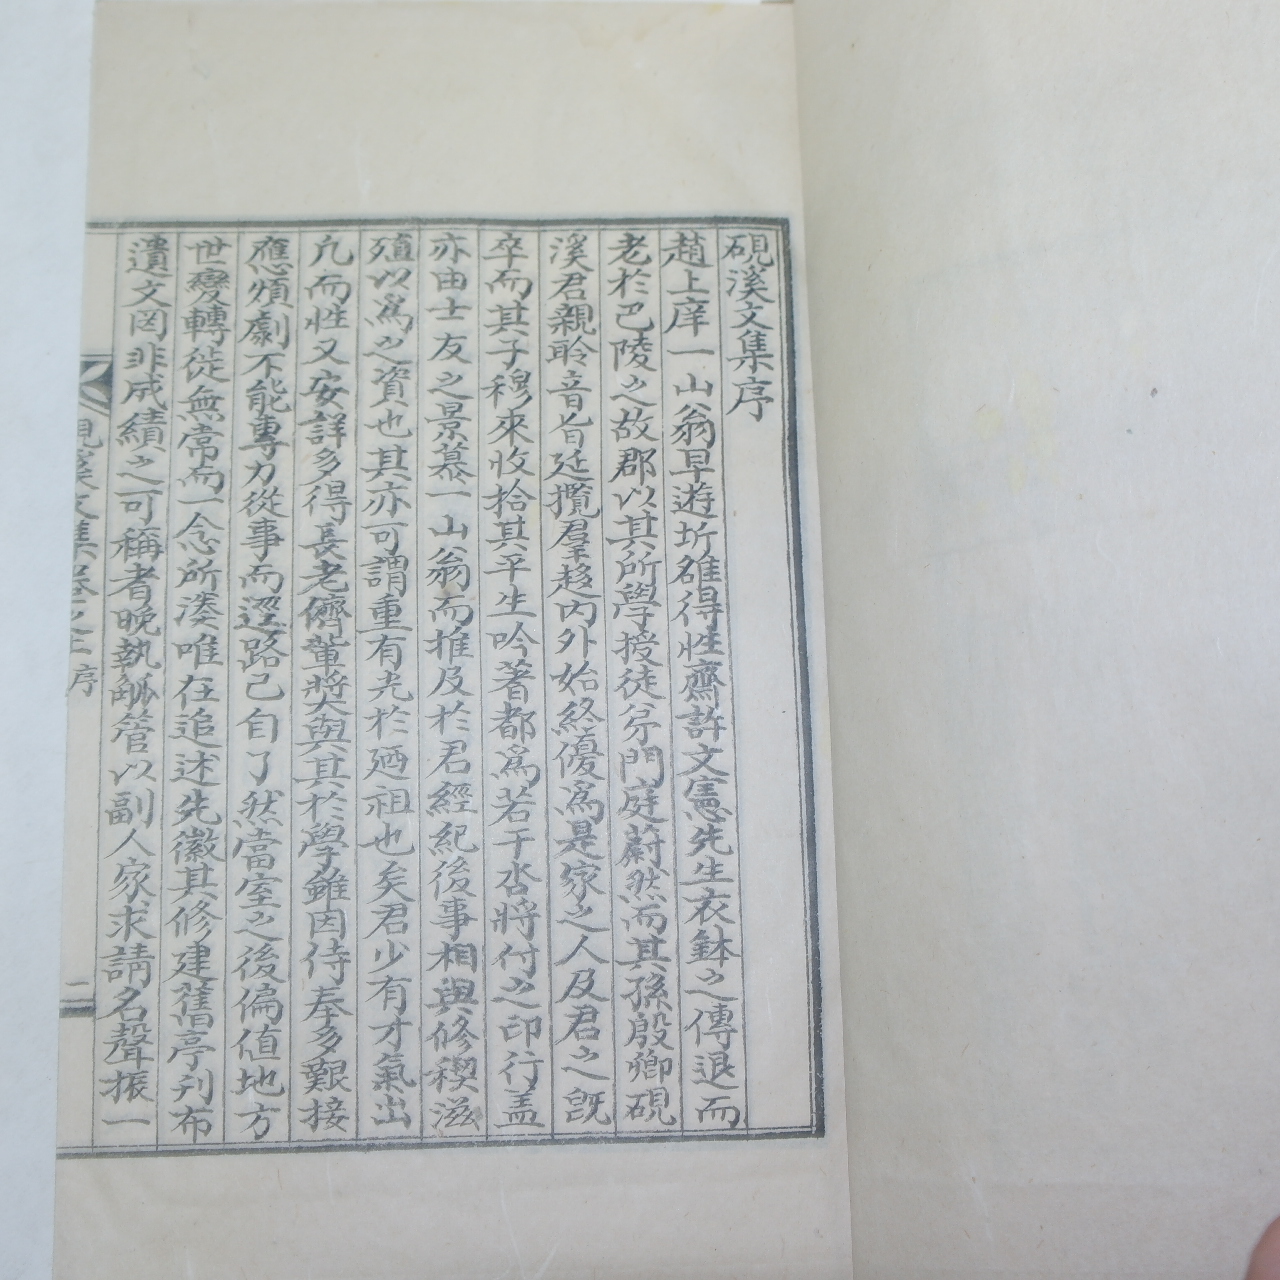 硯溪文集序
趙上庠一山翁早遊圻雒得性齋許文憲先生衣鉢之傳退而
老於巴陵之故郡以其所學授徒分門庭蔚然而其孫殷卿硯
溪君親聆音旨延攬羣趍內外始終優爲是家之人及君之旣
卒而其子穆來收拾其平生吟著都爲若干呇將付之印行盖
亦由士友之景慕一山翁而推及於君經紀後事相與修稧滋
殖以爲之資也其亦可謂重有光於廼祖也矣君少有才氣出
凡而性又安詳多得長老儕輩奬與其於學雖因侍奉多艱接
應煩劇不能專力從事而逕路已自了然當室之後偏値地方
世變轉徙無常而一念所湊唯在追述先徽其修建舊亭刊布
遺文罔非成績之可稱者晩執觚管以副人家求請名聲振一
硯溪文集卷之上 序
一